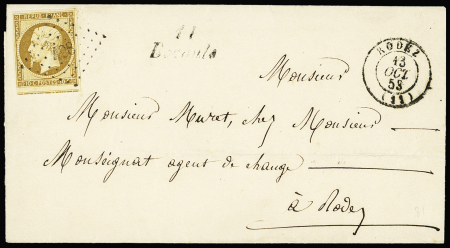 REPUB. FRANC.
10 C. POSTES 10 C.
11
RODEZ
13
OCT
53
(11)
Monsieur
Monsieur Muret, chez Monsieur
Monseignat agent de change
à Rodez